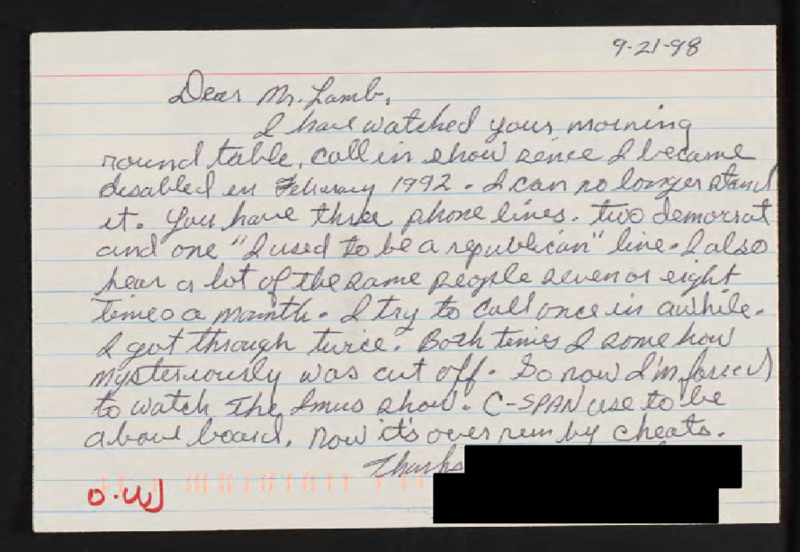 9-21-98
Dear Mr. Lamb,
I have watched your morning
round table, call in show since I became
disabled in February 1992. I can no longer stand
it. You have three phone lines. two democrat
and one "I used to be a republican" line. I also
hear a lot of the same people seven or eight
times a month. I try to call once in awhile.
I got through twice. Both times I some how
mysteriously was cut off. So now I'm forced
to watch The Imus show. C-SPAN use to be
above board, now it's over run by cheats.
Thanks
O.W